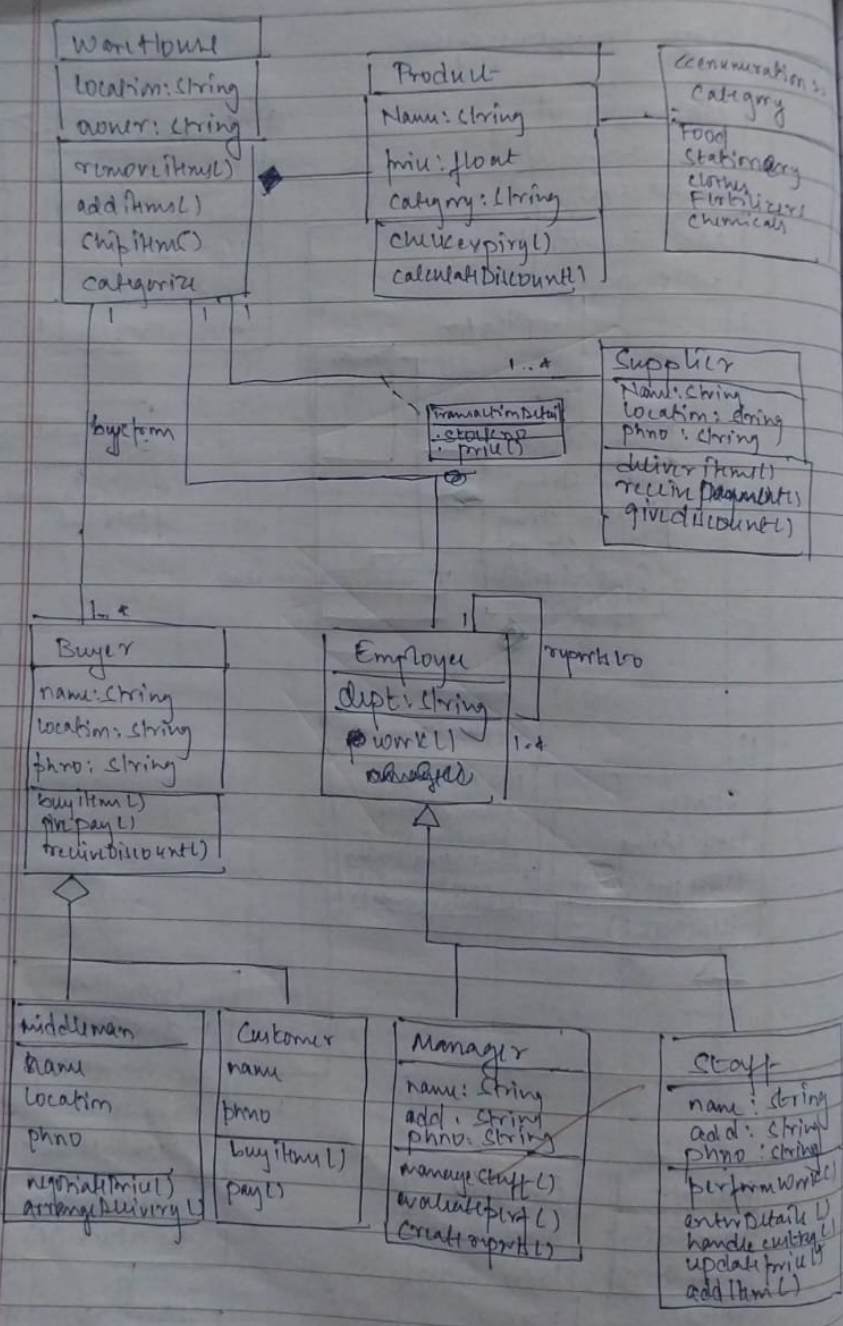 WareHouse
location: String
owner: String
removeitems()
additems()
shipitem()
categorize
Product
Name: String
price: float
category: String
checkexpiry()
calculateDiscount()
<<enumuration>>
Category
Food
Stationary
clothes
Firtilizers
chemicals
1
1
1
1..*
Supplier
Name: String
location: String
phno: String
deliveritems()
receivepayment()
givediscount()
TransactionDetail
price()
buysfrom
1..*
Buyer
name: String
location: String
phno: String
buyitems()
givepay()
receiveDiscount()
1
Employee
dept: String
work()
reports to
1..*
middleman
name
location
phno
negotiatePrice()
arrangeDelivery()
Customer
name
phno
buyitems()
pay()
Manager
name: String
add: String
phno: String
manageStaff()
evaluateperf()
Createreports()
Staff
name: String
add: String
phno: String
performWork()
enterDetails()
updateprice()
addItem()